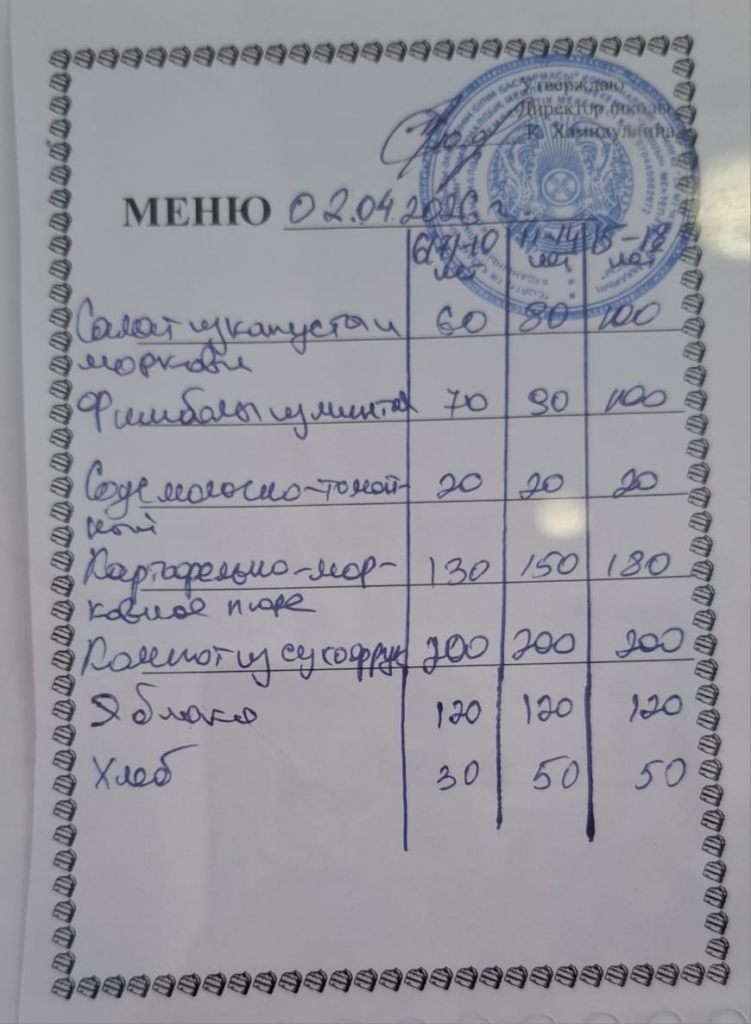 Утверждаю
Директор школы
К. Хамидуллина
МЕНЮ 02.04.2026 г.
6(7)-10 лет 11-14 лет 15-18 лет
Салат из капусты и 60 80 100
моркови
Фишболы из минтая 70 90 100
Соус молочно-томат- 20 20 20
ный
Картофельно-мор- 130 150 180
ковное пюре
Компот из сухофрук 200 200 200
Яблоко 120 120 120
Хлеб 30 50 50